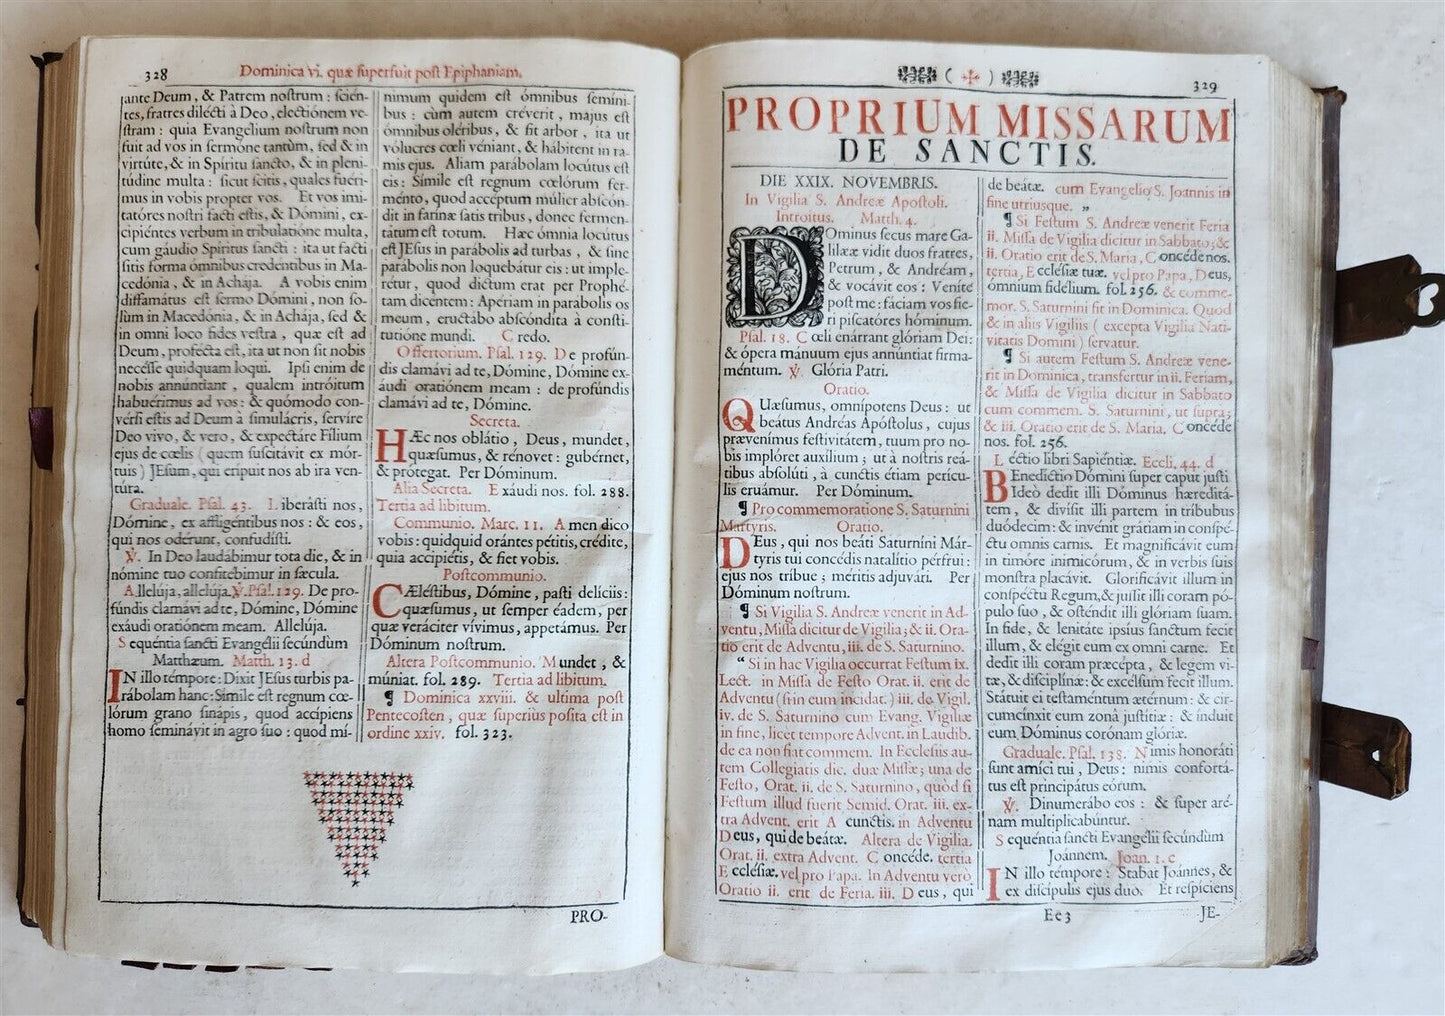 328
Dominica vi. quæ superfuit post Epiphaniam.
ante Deum, & Patrem nostrum : scien-
tes, fratres dilécti à Deo, electiónem ve-
stram : quia Evangelium nostrum non
fuit ad vos in sermóne tantùm, sed & in
virtúte, & in Spíritu sancto, & in pleni-
túdine multa : sicut scitis, quales fuéri-
mus in vobis propter vos. Et vos imi-
tatóres nostri facti estis, & Dómini, ex-
cipiéntes verbum in tribulatióne multa,
cum gáudio Spíritus sancti : ita ut facti
sitis forma ómnibus credentibus in Ma-
cedónia, & in Achája. A vobis enim
diffamátus est sermo Dómini, non so-
lùm in Macedónia, & in Achája, sed &
in omni loco fides vestra, quæ est ad
Deum, profécta est, ita ut non sit nobis
necésse quidquam loqui. Ipsi enim de
nobis annúntiant, qualem intróitum
habuerimus ad vos : & quómodo con-
vérsi estis ad Deum à simulácris, servíre
Deo vivo, & vero, & expectáre Fílium
ejus de cœlis ( quem suscitávit ex mór-
tuis ) JEsum, qui eripuit nos ab ira ven-
túra.
Graduale. Psal. 43. Liberásti nos,
Dómine, ex affligentibus nos : & eos,
qui nos odérunt, confudísti.
℣. In Deo laudábimur tota die, & in
nómine tuo confitébimur in sæcula.
Allelúja, allelúja. ℣. Psal. 129. De pro-
fúndis clamávi ad te, Dómine, Dómine
exáudi oratiónem meam. Allelúja.
Sequéntia sancti Evangelii secúndùm
Matthæum. Matth. 13. d
IN illo témpore : Dixit JEsus turbis pa-
rábolam hanc : Símile est regnum cœ-
lórum grano sinápis, quod accípiens
homo seminávit in agro suo : quod mí-
nimum quidem est ómnibus semíni-
bus : cùm autem créverit, majus est
ómnibus oléribus, & fit arbor, ita ut
vólucres cœli véniant, & hábitent in ra-
mis ejus. Aliam parábolam locútus est
eis : Símile est regnum cœlórum fer-
ménto, quod accéptum múlier abscón-
dit in farínæ satis tribus, donec fermen-
tátum est totum. Hæc ómnia locútus
est JEsus in parábolis ad turbas, & sine
parábolis non loquebátur eis : ut imple-
rétur, quod dictum erat per Prophé-
tam dicéntem : Apériam in parábolis os
meum, eructábo abscóndita à consti-
tutióne mundi. Credo.
Offertorium. Psal. 129. De profún-
dis clamávi ad te, Dómine, Dómine ex-
áudi oratiónem meam : de profúndis
clamávi ad te, Dómine.
Secreta.
HÆc nos oblátio, Deus, mundet,
quæsumus, & rénovet : gubérnet,
& prótegat. Per Dóminum.
Alia Secreta. Exáudi nos. fol. 288.
Tertia ad libitum.
Communio. Marc. 11. Amen dico
vobis : quidquid orántes pétitis, crédite,
quia accipiétis, & fiet vobis.
Postcommunio.
CÆléstibus, Dómine, pasti delíciis :
quæsumus, ut semper éadem, per
quæ veráciter vívimus, appetámus. Per
Dóminum nostrum.
Altera Postcommunio. Mundet, &
múniat. fol. 289. Tertia ad libitum.
¶ Dominica xxviii. & ultima post
Pentecosten, quæ superius posita est in
ordine xxiv. fol. 323.
PRO-
( ✠ )
329
PROPRIUM MISSARUM
DE SANCTIS.
DIE XXIX. NOVEMBRIS.
In Vigilia S. Andreæ Apostoli.
Introitus. Matth. 4.
DOminus secus mare Ga-
lilææ vidit duos fratres,
Petrum, & Andréam,
& vocávit eos : Veníte
post me : fáciam vos fíe-
ri piscatóres hóminum.
Psal. 18. Cœli enárrant glóriam Dei :
& ópera mánuum ejus annúntiat firma-
méntum. ℣. Glória Patri.
Oratio.
QUæsumus, omnípotens Deus : ut
beátus Andréas Apóstolus, cujus
prævenímus festivitátem, tuum pro no-
bis implóret auxílium ; ut à nostris reá-
tibus absolúti, à cunctis étiam perícu-
lis eruámur. Per Dóminum.
¶ Pro commemoratione S. Saturnini
Martyris. Oratio.
DEus, qui nos beáti Saturníni Már-
tyris tui concédis natalítio pérfrui :
ejus nos tríbue ; méritis adjuvári. Per
Dóminum nostrum.
¶ Si Vigilia S. Andreæ venerit in Ad-
ventu, Missa dicitur de Vigilia ; & ii. Ora-
tio erit de Adventu, iii. de S. Saturnino.
“ Si in hac Vigilia occurrat Festum ix.
Lect. in Missa de Festo Orat. ii. erit de
Adventu ( si in eum incidat. ) iii. de Vigil.
iv. de S. Saturnino cum Evang. Vigiliæ
in fine, licet tempore Advent. in Laudib.
de ea non fiat commem. In Ecclesiis au-
tem Collegiatis dic. duæ Missæ ; una de
Festo, Orat. ii. de S. Saturnino, quòd si
Festum illud fuerit Semid. Orat. iii. ex-
tra Advent. erit A cunctis. in Adventu
Deus, qui de beátæ. Altera de Vigilia.
Orat. ii. extra Advent. Concéde. tertia
Ecclésiæ. vel pro Papa. In Adventu verò
Oratio ii. erit de Feria. iii. Deus, qui
de beátæ. cum Evangelio S. Joannis in
fine utriusque. „
¶ Si Festum S. Andreæ venerit Feria
ii. Missa de Vigilia dicitur in Sabbato ; &
ii. Oratio erit de S. Maria, Concéde nos.
tertia, Ecclésiæ tuæ. vel pro Papa, Deus,
ómnium fidélium. fol. 256. & comme-
mor. S. Saturnini fit in Dominica. Quod
& in aliis Vigiliis ( excepta Vigilia Nati-
vitatis Domini ) servatur.
¶ Si autem Festum S. Andreæ vene-
rit in Dominica, transfertur in ii. Feriam,
& Missa de Vigilia dicitur in Sabbato
cum commem. S. Saturnini, ut supra ;
& iii. Oratio erit de S. Maria. Concéde
nos. fol. 256.
Léctio libri Sapiéntiæ. Eccli. 44. d
BEnedíctio Dómini super caput justi
Ideò dedit illi Dóminus hæreditá-
tem, & divísit illi partem in tríbubus
duódecim : & invénit grátiam in conspé-
ctu omnis carnis. Et magnificávit eum
in timóre inimicórum, & in verbis suis
monstra placávit. Glorificávit illum in
conspéctu Regum, & jussit illi coram pó-
pulo suo, & osténdit illi glóriam suam.
In fide, & lenitáte ipsíus sanctum fecit
illum, & elégit eum ex omni carne. Et
dedit illi coram præcépta, & legem vi-
tæ, & disciplínæ : & excélsum fecit illum.
Státuit ei testaméntum ætérnum : & cir-
cumcínxit eum zonâ justítiæ : & índuit
eum Dóminus corónam glóriæ.
Graduale. Psal. 138. Nimis honoráti
sunt amíci tui, Deus : nimis confortá-
tus est principátus eórum.
℣. Dinumerábo eos : & super aré-
nam multiplicabúntur.
Sequéntia sancti Evangélii secúndùm
Joánnem. Joan. 1. c
IN illo témpore : Stabat Joánnes, &
ex discípulis ejus duo. Et respíciens
Ee 3
JE-